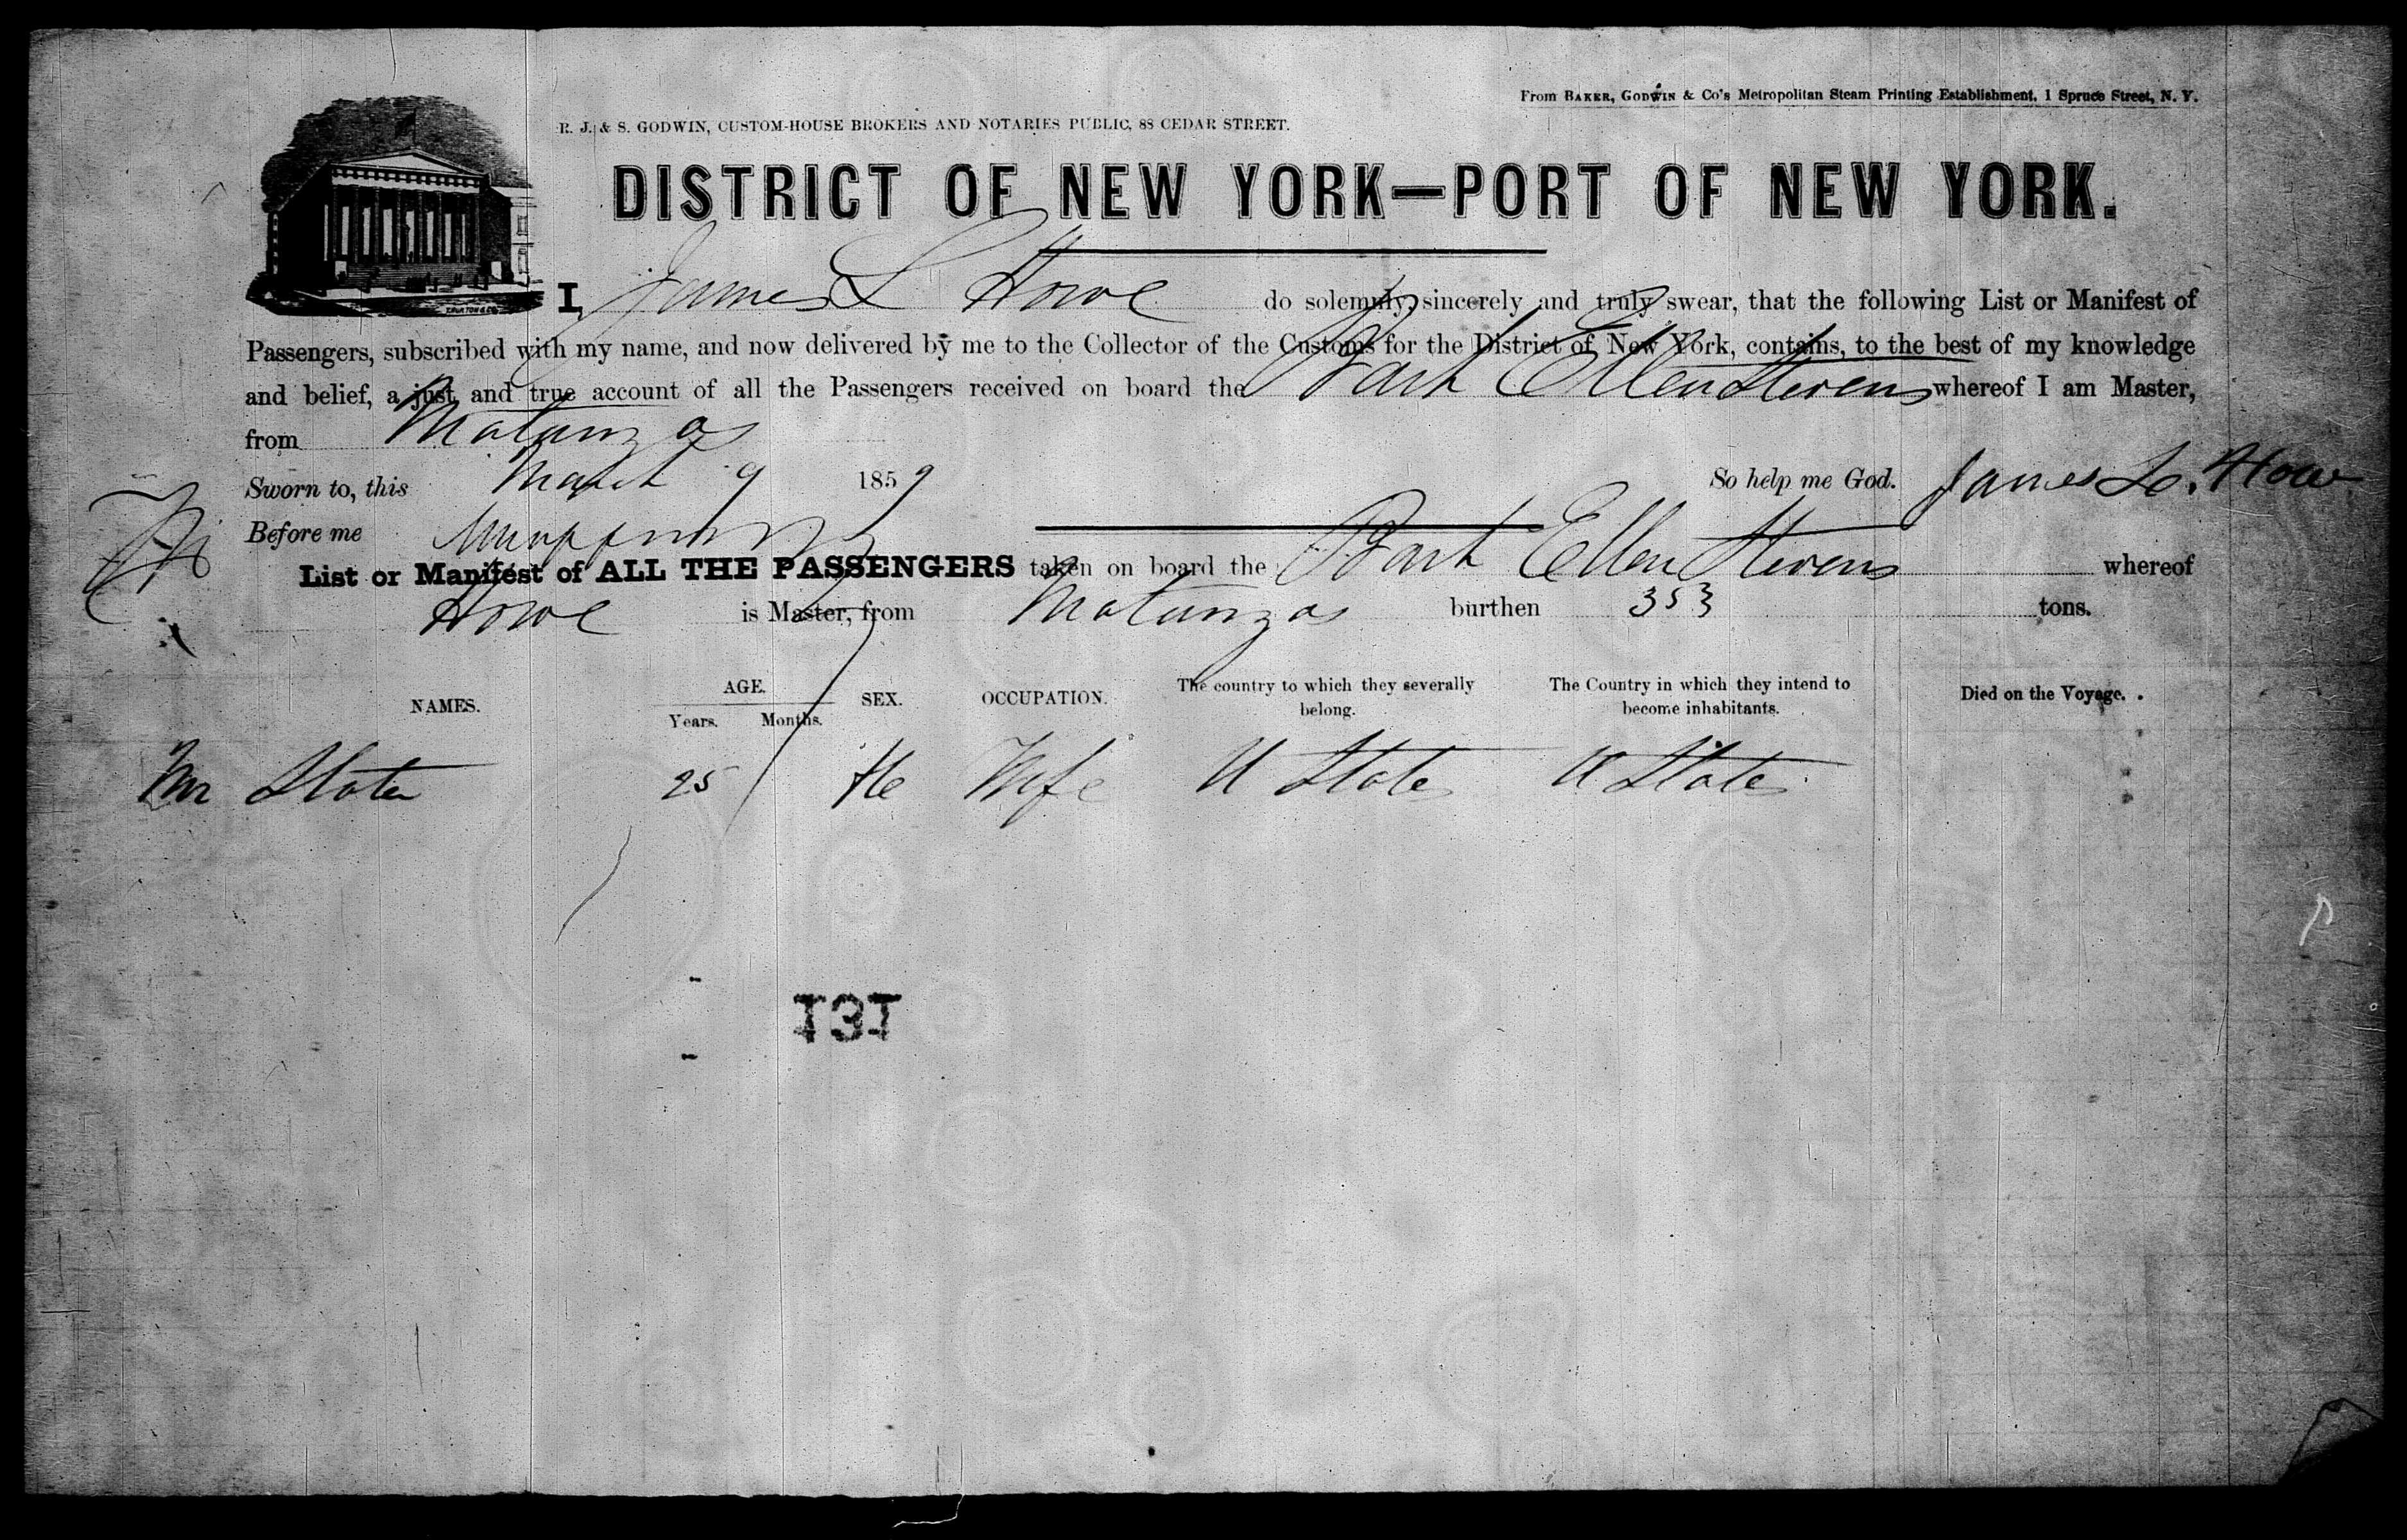 From BAKER, GODWIN & Co's Metropolitan Steam Printing Establishment, 1 Spruce Street, N. Y.
R. J. & S. GODWIN, CUSTOM-HOUSE BROKERS AND NOTARIES PUBLIC, 88 CEDAR STREET.
DISTRICT OF NEW YORK—PORT OF NEW YORK.
I, James L Howe do solemnly, sincerely and truly swear, that the following List or Manifest of
Passengers, subscribed with my name, and now delivered by me to the Collector of the Customs for the District of New York, contains, to the best of my knowledge
and belief, a just and true account of all the Passengers received on board the Bark Ellen Stevens whereof I am Master,
from Matanzas
Sworn to, this March 9 1859 So help me God. James L. Howe
Before me
List or Manifest of ALL THE PASSENGERS taken on board the Bark Ellen Stevens whereof
Howe is Master, from Matanzas burthen 353 tons.
NAMES. AGE. Years. Months. SEX. OCCUPATION. The country to which they severally belong. The Country in which they intend to become inhabitants. Died on the Voyage.
Slater 25 Wife U States U States
131